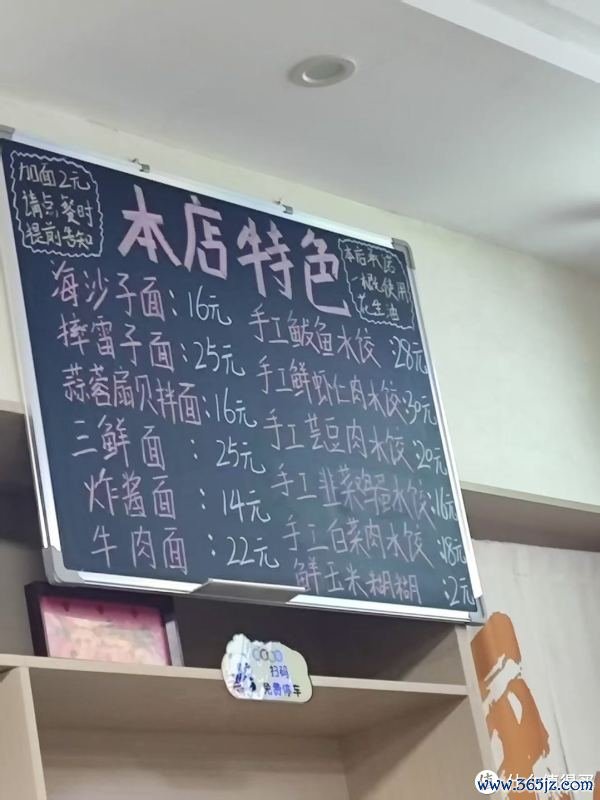 加面2元
请点餐时
提前告知
本店特色
本店承诺
一概使用
花生油
海沙子面：16元
摔雷子面：25元
蒜蓉扇贝拌面：16元
三鲜面：25元
炸酱面：14元
牛肉面：22元
手工鲅鱼水饺：28元
手工鲜虾仁肉水饺：30元
手工芸豆肉水饺：20元
手工韭菜鸡蛋水饺：16元
手工白菜肉水饺：18元
鲜玉米糊糊：2元
扫码
免费停车
值 什么值得买
www.365jz.com